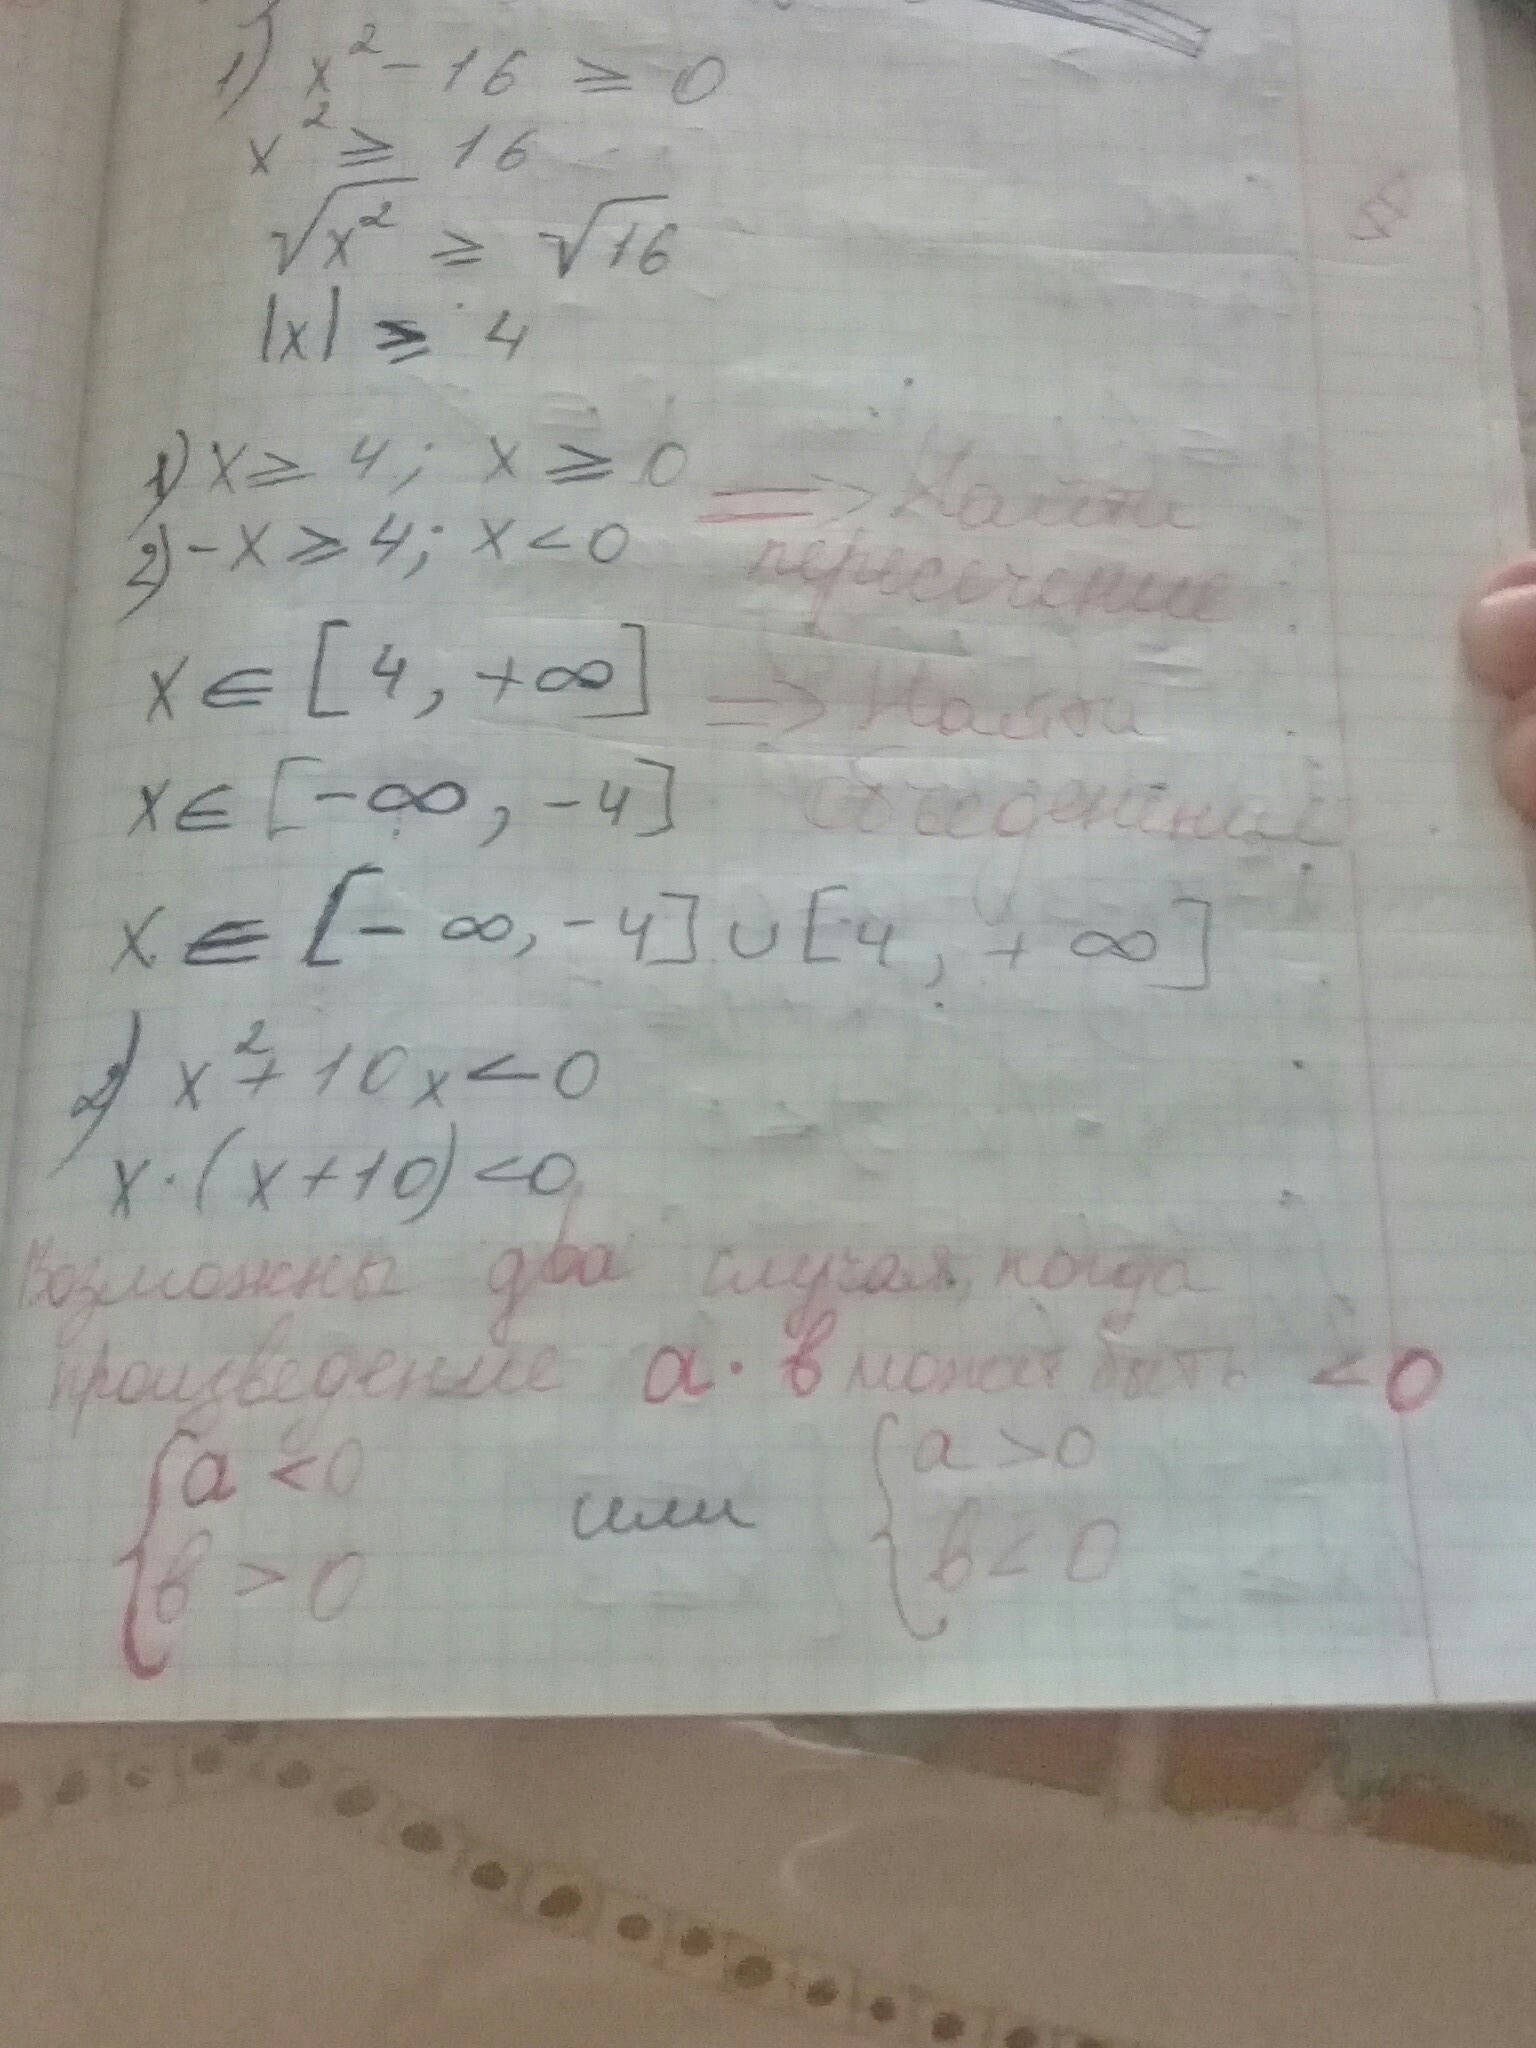 1) x² - 16 ≥ 0
x² ≥ 16
√x² ≥ √16
|x| ≥ 4
1) x ≥ 4; x ≥ 0 => Найти
2) -x ≥ 4; x < 0 пересечение
x ∈ [4, +∞] => Найти
x ∈ [-∞, -4] объеденение
x ∈ [-∞, -4] ∪ [4, +∞]
2) x² + 10x < 0
x · (x + 10) < 0
Возможны два случая, когда
произведение a · b может быть < 0
{ a < 0 или { a > 0
b > 0 b < 0